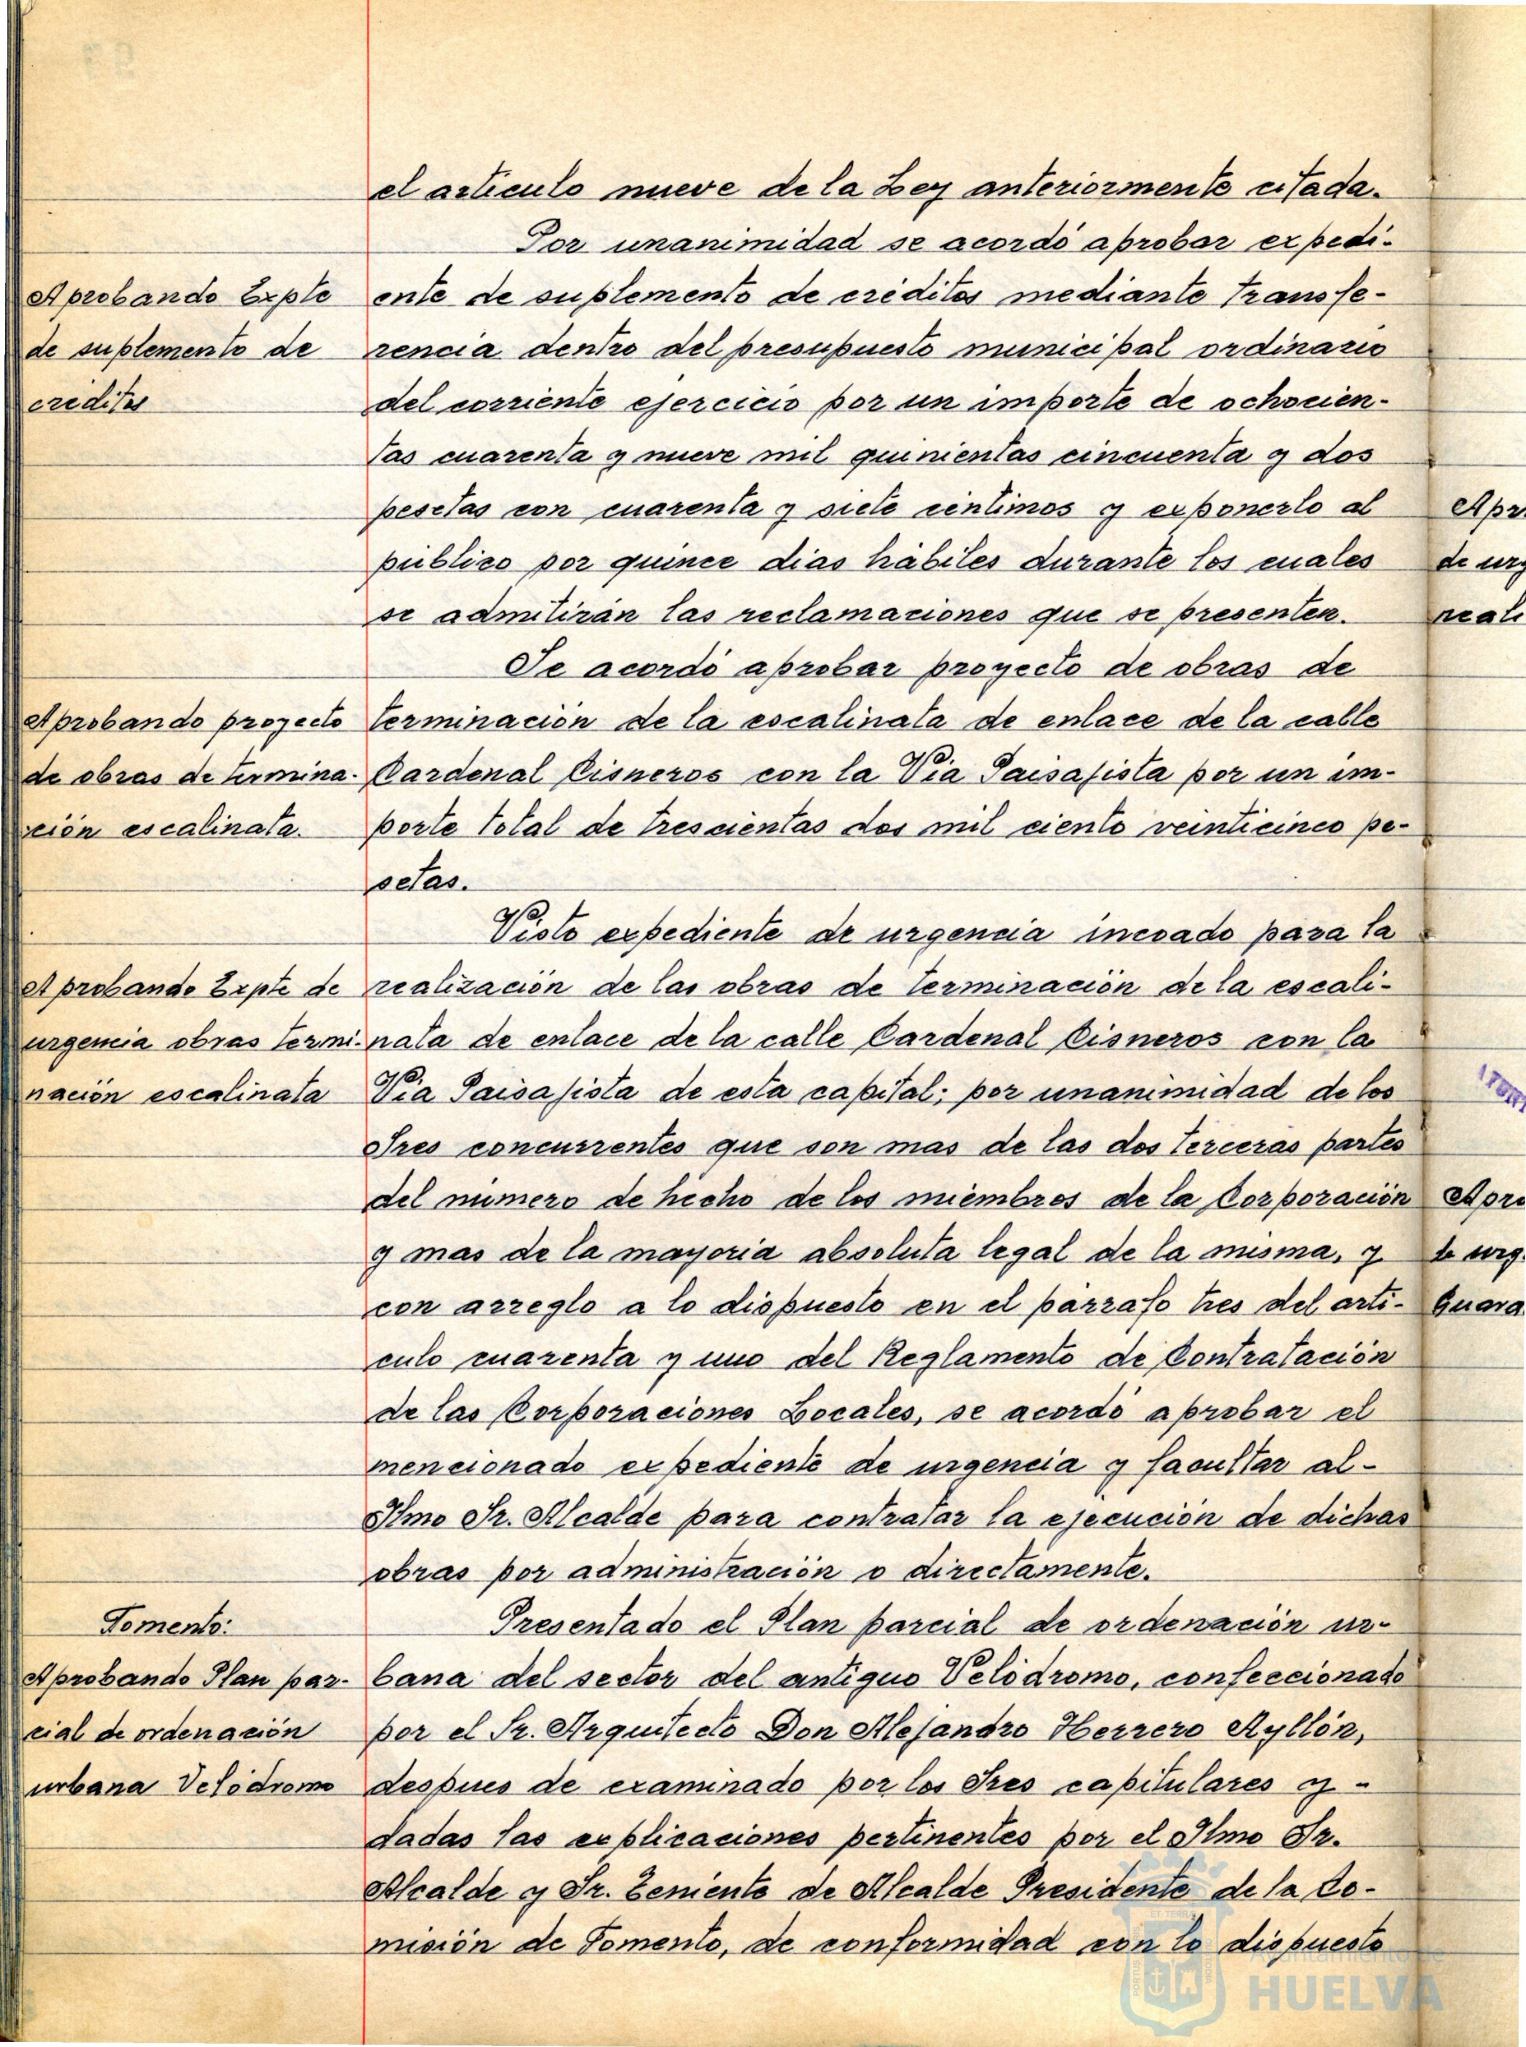 el articulo nueve de la Ley anteriormente citada.
Por unanimidad se acordó aprobar expedi-
Aprobando Expte
de suplemento de
créditos
ente de suplemento de créditos mediante transfe-
rencia dentro del presupuesto municipal ordinario
del corriente ejercicio por un importe de ochocien-
tas cuarenta y nueve mil quinientas cincuenta y dos
pesetas con cuarenta y siete céntimos y exponerlo al
público por quince dias hábiles durante los cuales
se admitirán las reclamaciones que se presenten.
Se acordó aprobar proyecto de obras de
Aprobando proyecto
de obras de termina-
ción escalinata.
terminación de la escalinata de enlace de la calle
Cardenal Cisneros con la Via Paisajista por un im-
porte total de trescientas dos mil ciento veinticinco pe-
setas.
Visto expediente de urgencia incoado para la
Aprobando Expte de
urgencia obras termi-
nación escalinata
realización de las obras de terminación de la escali-
nata de enlace de la calle Cardenal Cisneros con la
Via Paisajista de esta capital; por unanimidad de los
Sres concurrentes que son mas de las dos terceras partes
del número de hecho de los miembros de la Corporación
y mas de la mayoria absoluta legal de la misma, y
con arreglo a lo dispuesto en el párrafo tres del arti-
culo cuarenta y uno del Reglamento de Contratación
de las Corporaciones Locales, se acordó aprobar el
mencionado expediente de urgencia y facultar al-
Ilmo Sr. Alcalde para contratar la ejecución de dichas
obras por administración o directamente.
Fomento:
Aprobando Plan par-
cial de ordenación
urbana Velódromo
Presentado el Plan parcial de ordenación ur-
bana del sector del antiguo Velódromo, confeccionado
por el Sr. Arquitecto Don Alejandro Herrero Ayllón,
despues de examinado por los Sres capitulares y -
dadas las explicaciones pertinentes por el Ilmo Sr.
Alcalde y Sr. Teniente de Alcalde Presidente de la Co-
misión de Fomento, de conformidad con lo dispuesto
Apr
de urg
reali
Apro
urg.
Guara
Ayuntamiento de
HUELVA